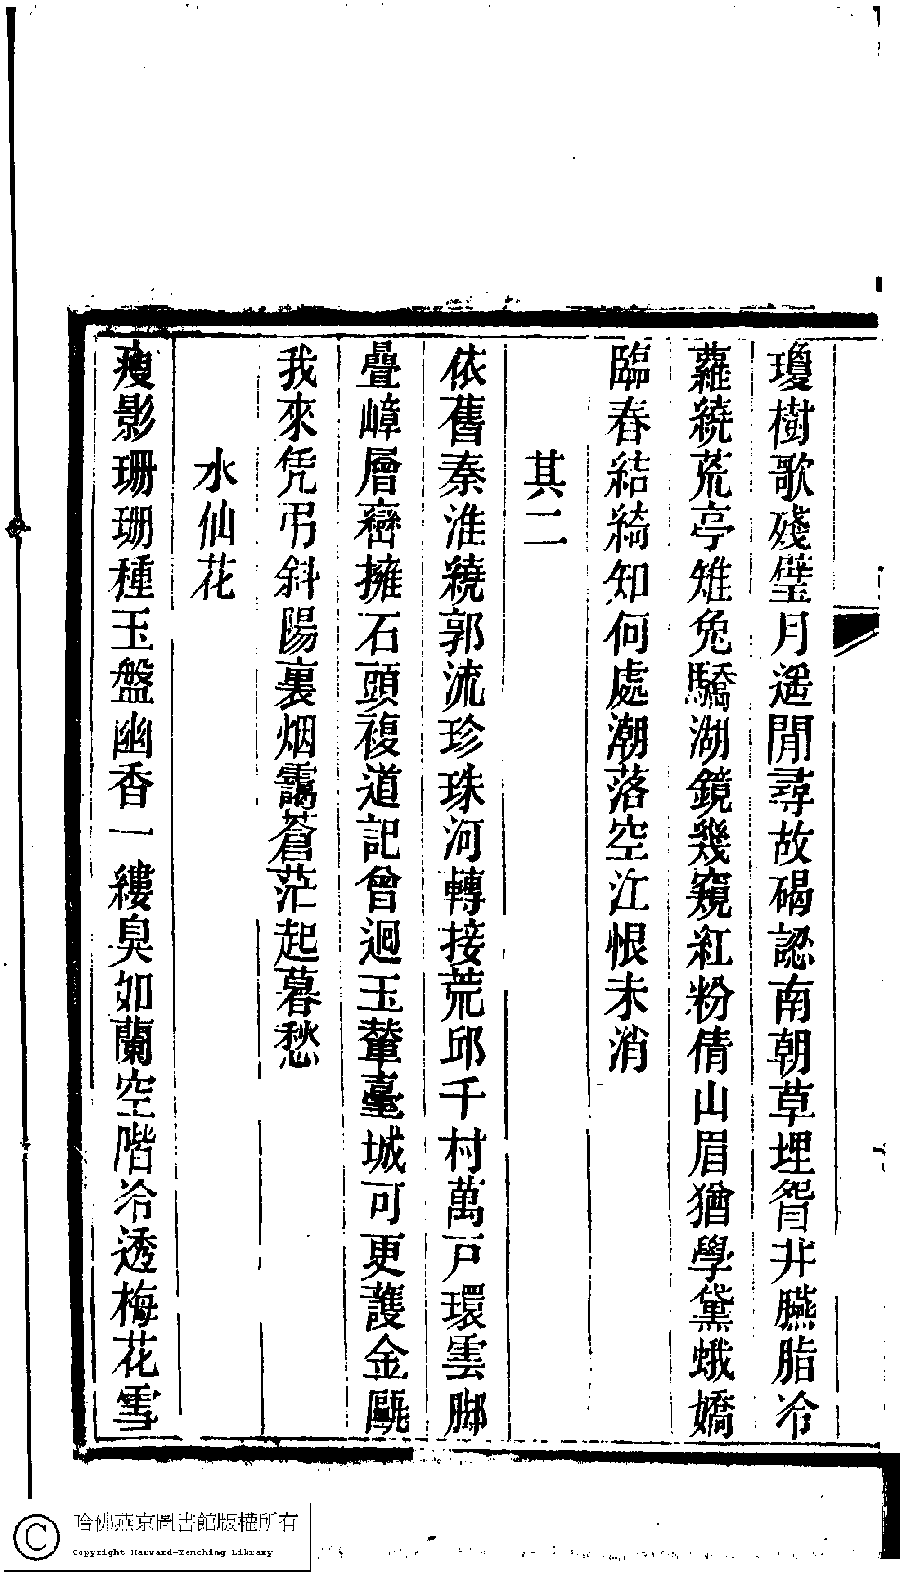 瓊樹歌殘璧月遥閒尋故碣認南朝草埋眢井臙脂冷
蘿繞荒亭雉兔驕湖鏡幾窺紅粉倩山眉猶學黛蛾嬌
臨春結綺知何處潮落空江恨未消
其二
依舊秦淮繞郭流珍珠河轉接荒邱千村萬戸環雲脚
疊嶂層巒擁石頭複道記曾迴玉輦臺城可更護金甌
我來凭弔斜陽裏烟靄蒼茫起暮愁
水仙花
瘦影珊珊種玉盤幽香一縷臭如蘭空階冷透梅花雪
哈佛燕京圖書館版權所有
Copyright Harvard-Yenching Library